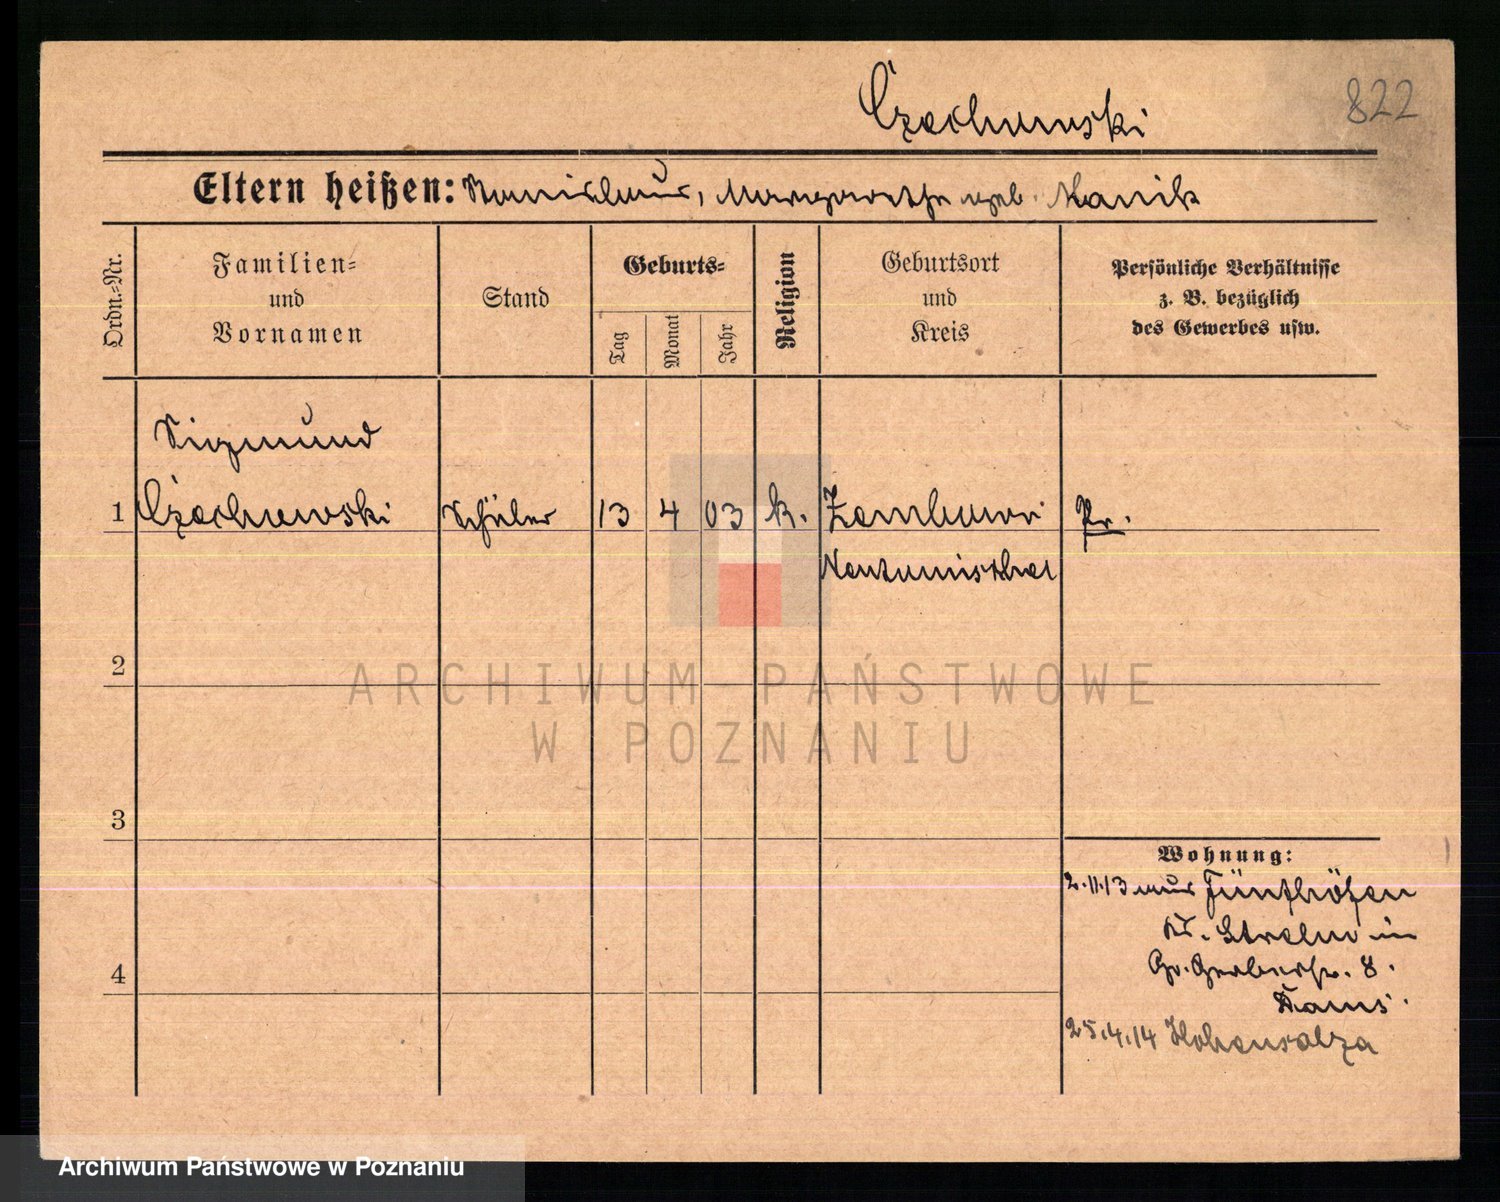 Czochowski
822
Eltern heißen: Stanislaus, Margarethe geb. Kanik
Ordn.-Nr.
Familien-
und
Vornamen
Stand
Geburts-
Tag
Monat
Jahr
Religion
Geburtsort
und
Kreis
Persönliche Verhältnisse
z. B. bezüglich
des Gewerbes usw.
Sigmund
1 Czochowski Schüler 13 4 03 k. Zembowo Pr.
Neutomischel
2
ARCHIWUM PAŃSTWOWE
W POZNANIU
3
Wohnung:
2.11.13 aus Fünfhöfen
Kr. Strelno in
Gr. Gerberstr. 8.
25.4.14 Hohensalza
4
Archiwum Państwowe w Poznaniu